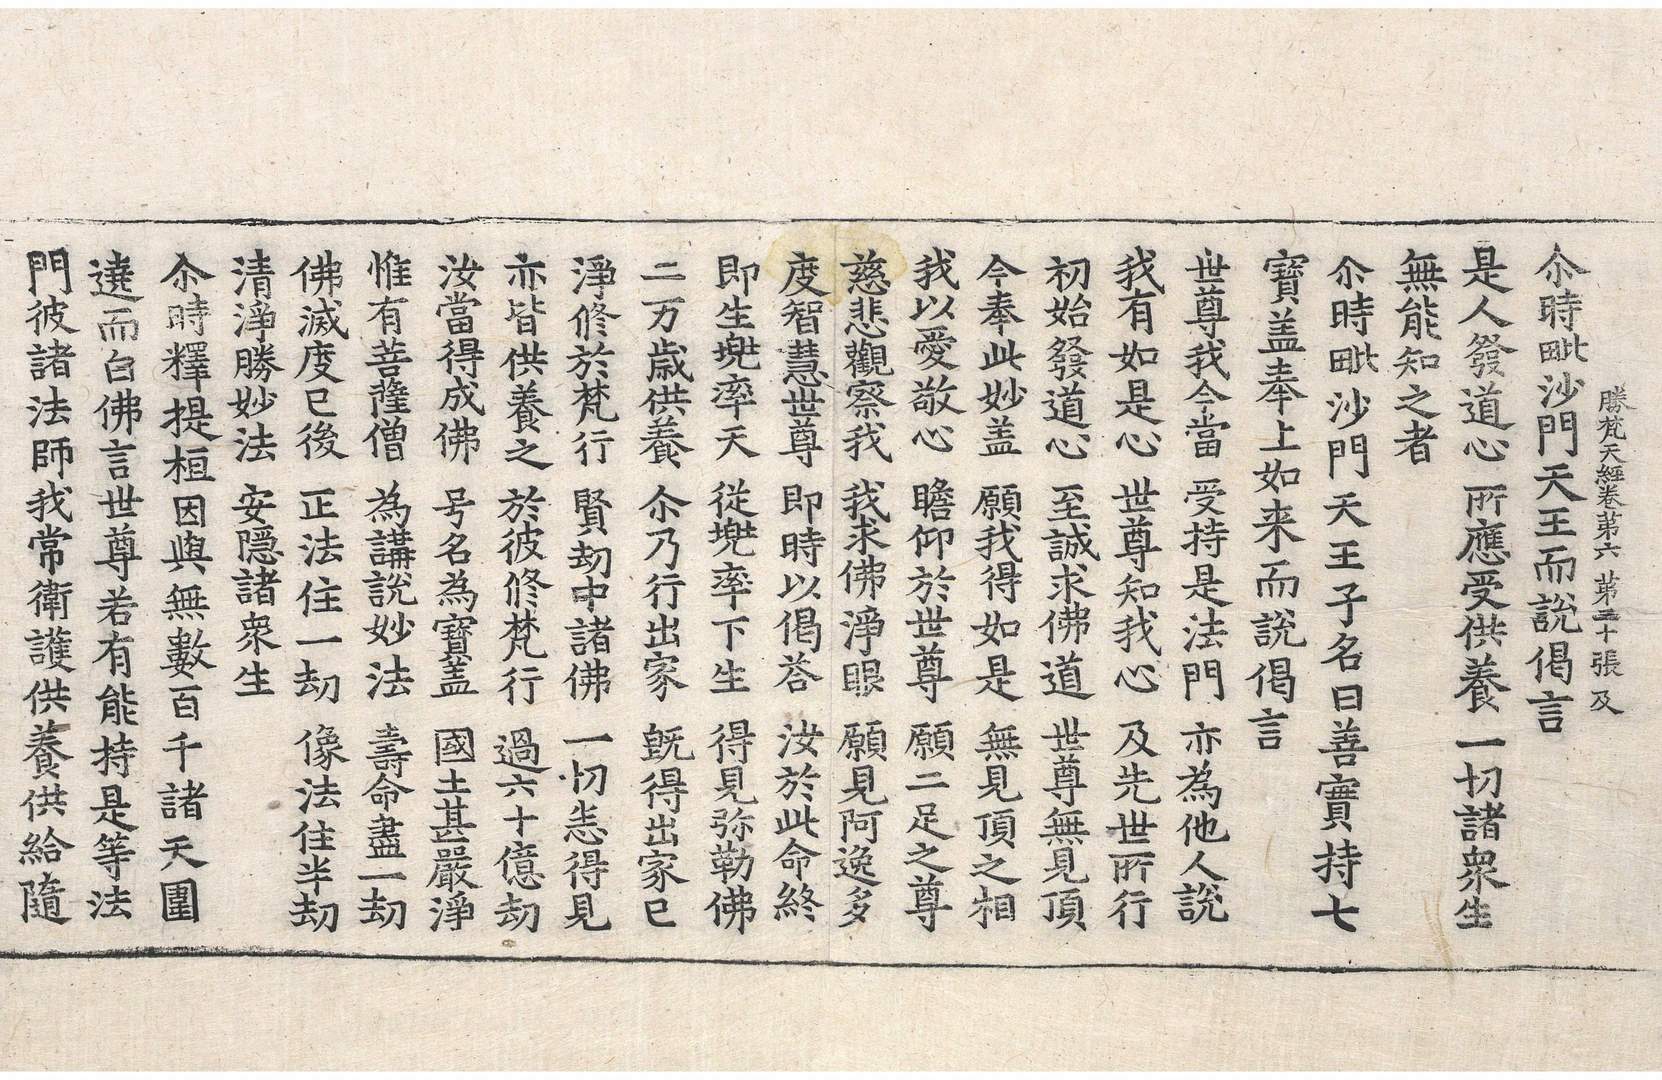 勝梵天經卷第六 第三十張 及
尒時毗沙門天王而說偈言
是人發道心 所應受供養 一切諸衆生
無能知之者
尒時毗沙門天王子名曰善寶持七
寶盖奉上如来而說偈言
世尊我今當 受持是法門 亦為他人說
我有如是心 世尊知我心 及先世所行
初始發道心 至誠求佛道 世尊無見頂
今奉此妙盖 願我得如是 無見頂之相
我以愛敬心 瞻仰於世尊 願二足之尊
慈悲觀察我 我求佛淨眼 願見阿逸多
度智慧世尊 即時以偈荅 汝於此命終
即生兠率天 從兠率下生 得見弥勒佛
二万歲供養 尒乃行出家 既得出家已
淨修於梵行 賢劫中諸佛 一切悉得見
亦皆供養之 於彼修梵行 過六十億劫
汝當得成佛 号名為寶盖 國土甚嚴淨
惟有菩薩僧 為講說妙法 壽命盡一劫
佛滅度已後 正法住一劫 像法住半劫
清淨勝妙法 安隱諸衆生
尒時釋提桓因與無數百千諸天圍
遶而白佛言世尊若有能持是等法
門彼諸法師我常衛護供養供給隨